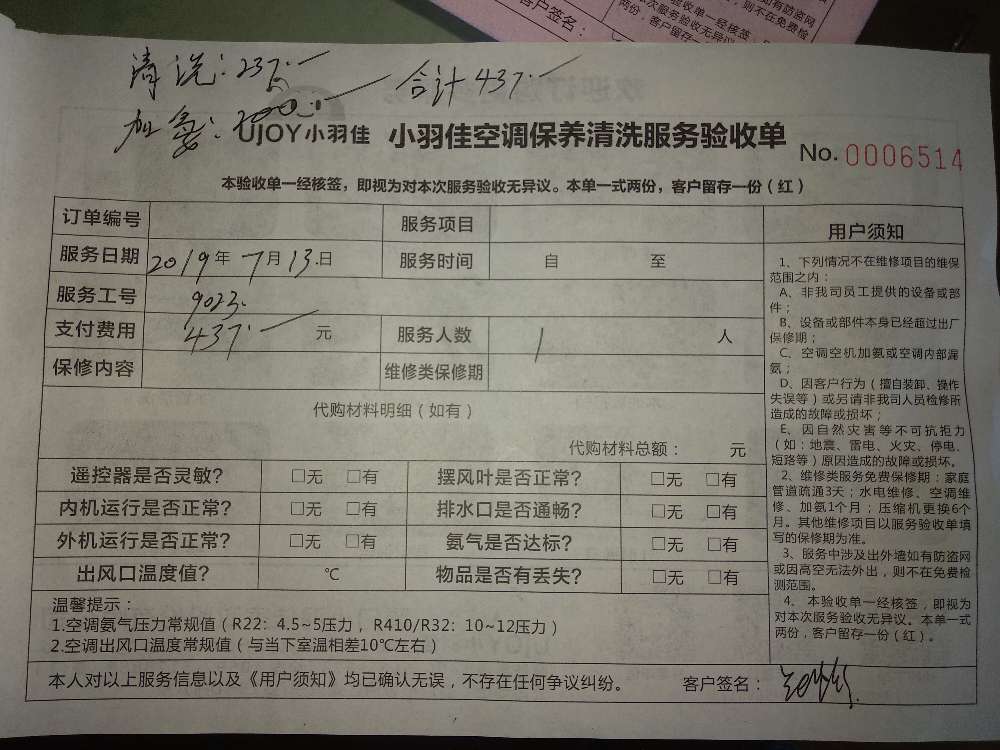 客户签名：
清洗：237.
合计437.
加氨：200
UJOY小羽佳 小羽佳空调保养清洗服务验收单
No. 0006514
本验收单一经核签，即视为对本次服务验收无异议。本单一式两份，客户留存一份（红）
订单编号 服务项目
服务日期 2019年7月13日 服务时间 自 至
服务工号 9023.
支付费用 437. 元 服务人数 1 人
保修内容 维修类保修期
代购材料明细（如有）
代购材料总额： 元
遥控器是否灵敏？ □无 □有 摆风叶是否正常？ □无 □有
内机运行是否正常？ □无 □有 排水口是否通畅？ □无 □有
外机运行是否正常？ □无 □有 氨气是否达标？ □无 □有
出风口温度值？ ℃ 物品是否有丢失？ □无 □有
温馨提示：
1.空调氨气压力常规值（R22：4.5~5压力，R410/R32：10~12压力）
2.空调出风口温度常规值（与当下室温相差10℃左右）
本人对以上服务信息以及《用户须知》均已确认无误，不存在任何争议纠纷。 客户签名：
用户须知
1、下列情况不在维修项目的维保
范围之内：
A、非我司员工提供的设备或部
件；
B、设备或部件本身已经超过出厂
保修期；
C、空调空机加氨或空调内部漏
氨；
D、因客户行为（擅自装卸、操作
失误等）或另请非我司人员检修所
造成的故障或损坏；
E、因自然灾害等不可抗拒力
（如：地震、雷电、火灾、停电、
短路等）原因造成的故障或损坏。
2、维修类服务免费保修期：家庭
管道疏通3天；水电维修、空调维
修、加氨1个月；压缩机更换6个
月。其他维修项目以服务验收单填
写的保修期为准。
3、服务中涉及出外墙如有防盗网
或因高空无法外出，则不在免费检
测范围。
4、本验收单一经核签，即视为
对本次服务验收无异议。本单一式
两份，客户留存一份（红）。